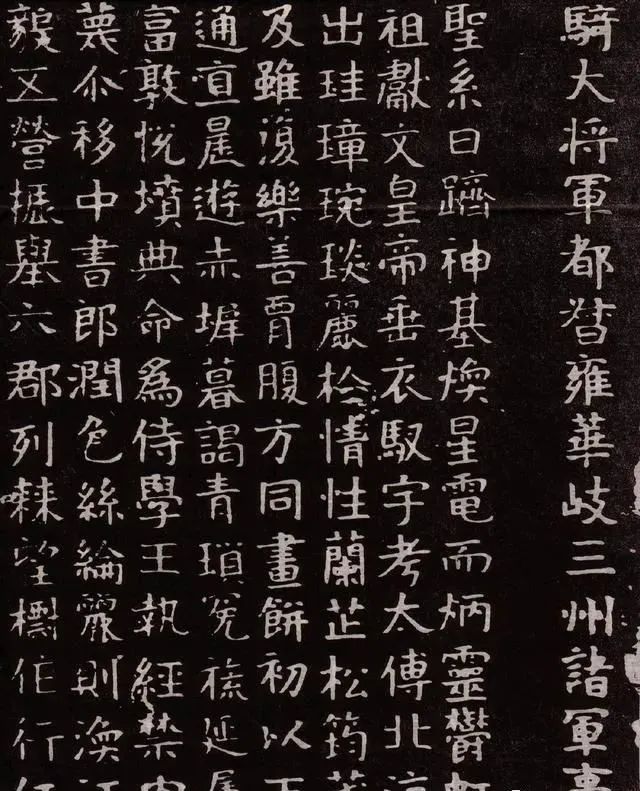 騎大将軍都督雍華岐三州諸軍事
聖系日躋神基煥星電而炳靈鬱
祖獻文皇帝垂衣馭宇考太傅北
出珪璋琬琰麗於情性蘭芷松筠
及雖復樂善胃腹方同畫餅初以
通直晨遊赤墀暮謁青瑣冕旒延
富敦悅墳典命為侍學王執經禁
義尒移中書郎潤色絲綸麗則渙
五營振舉六郡列棘望樹作行